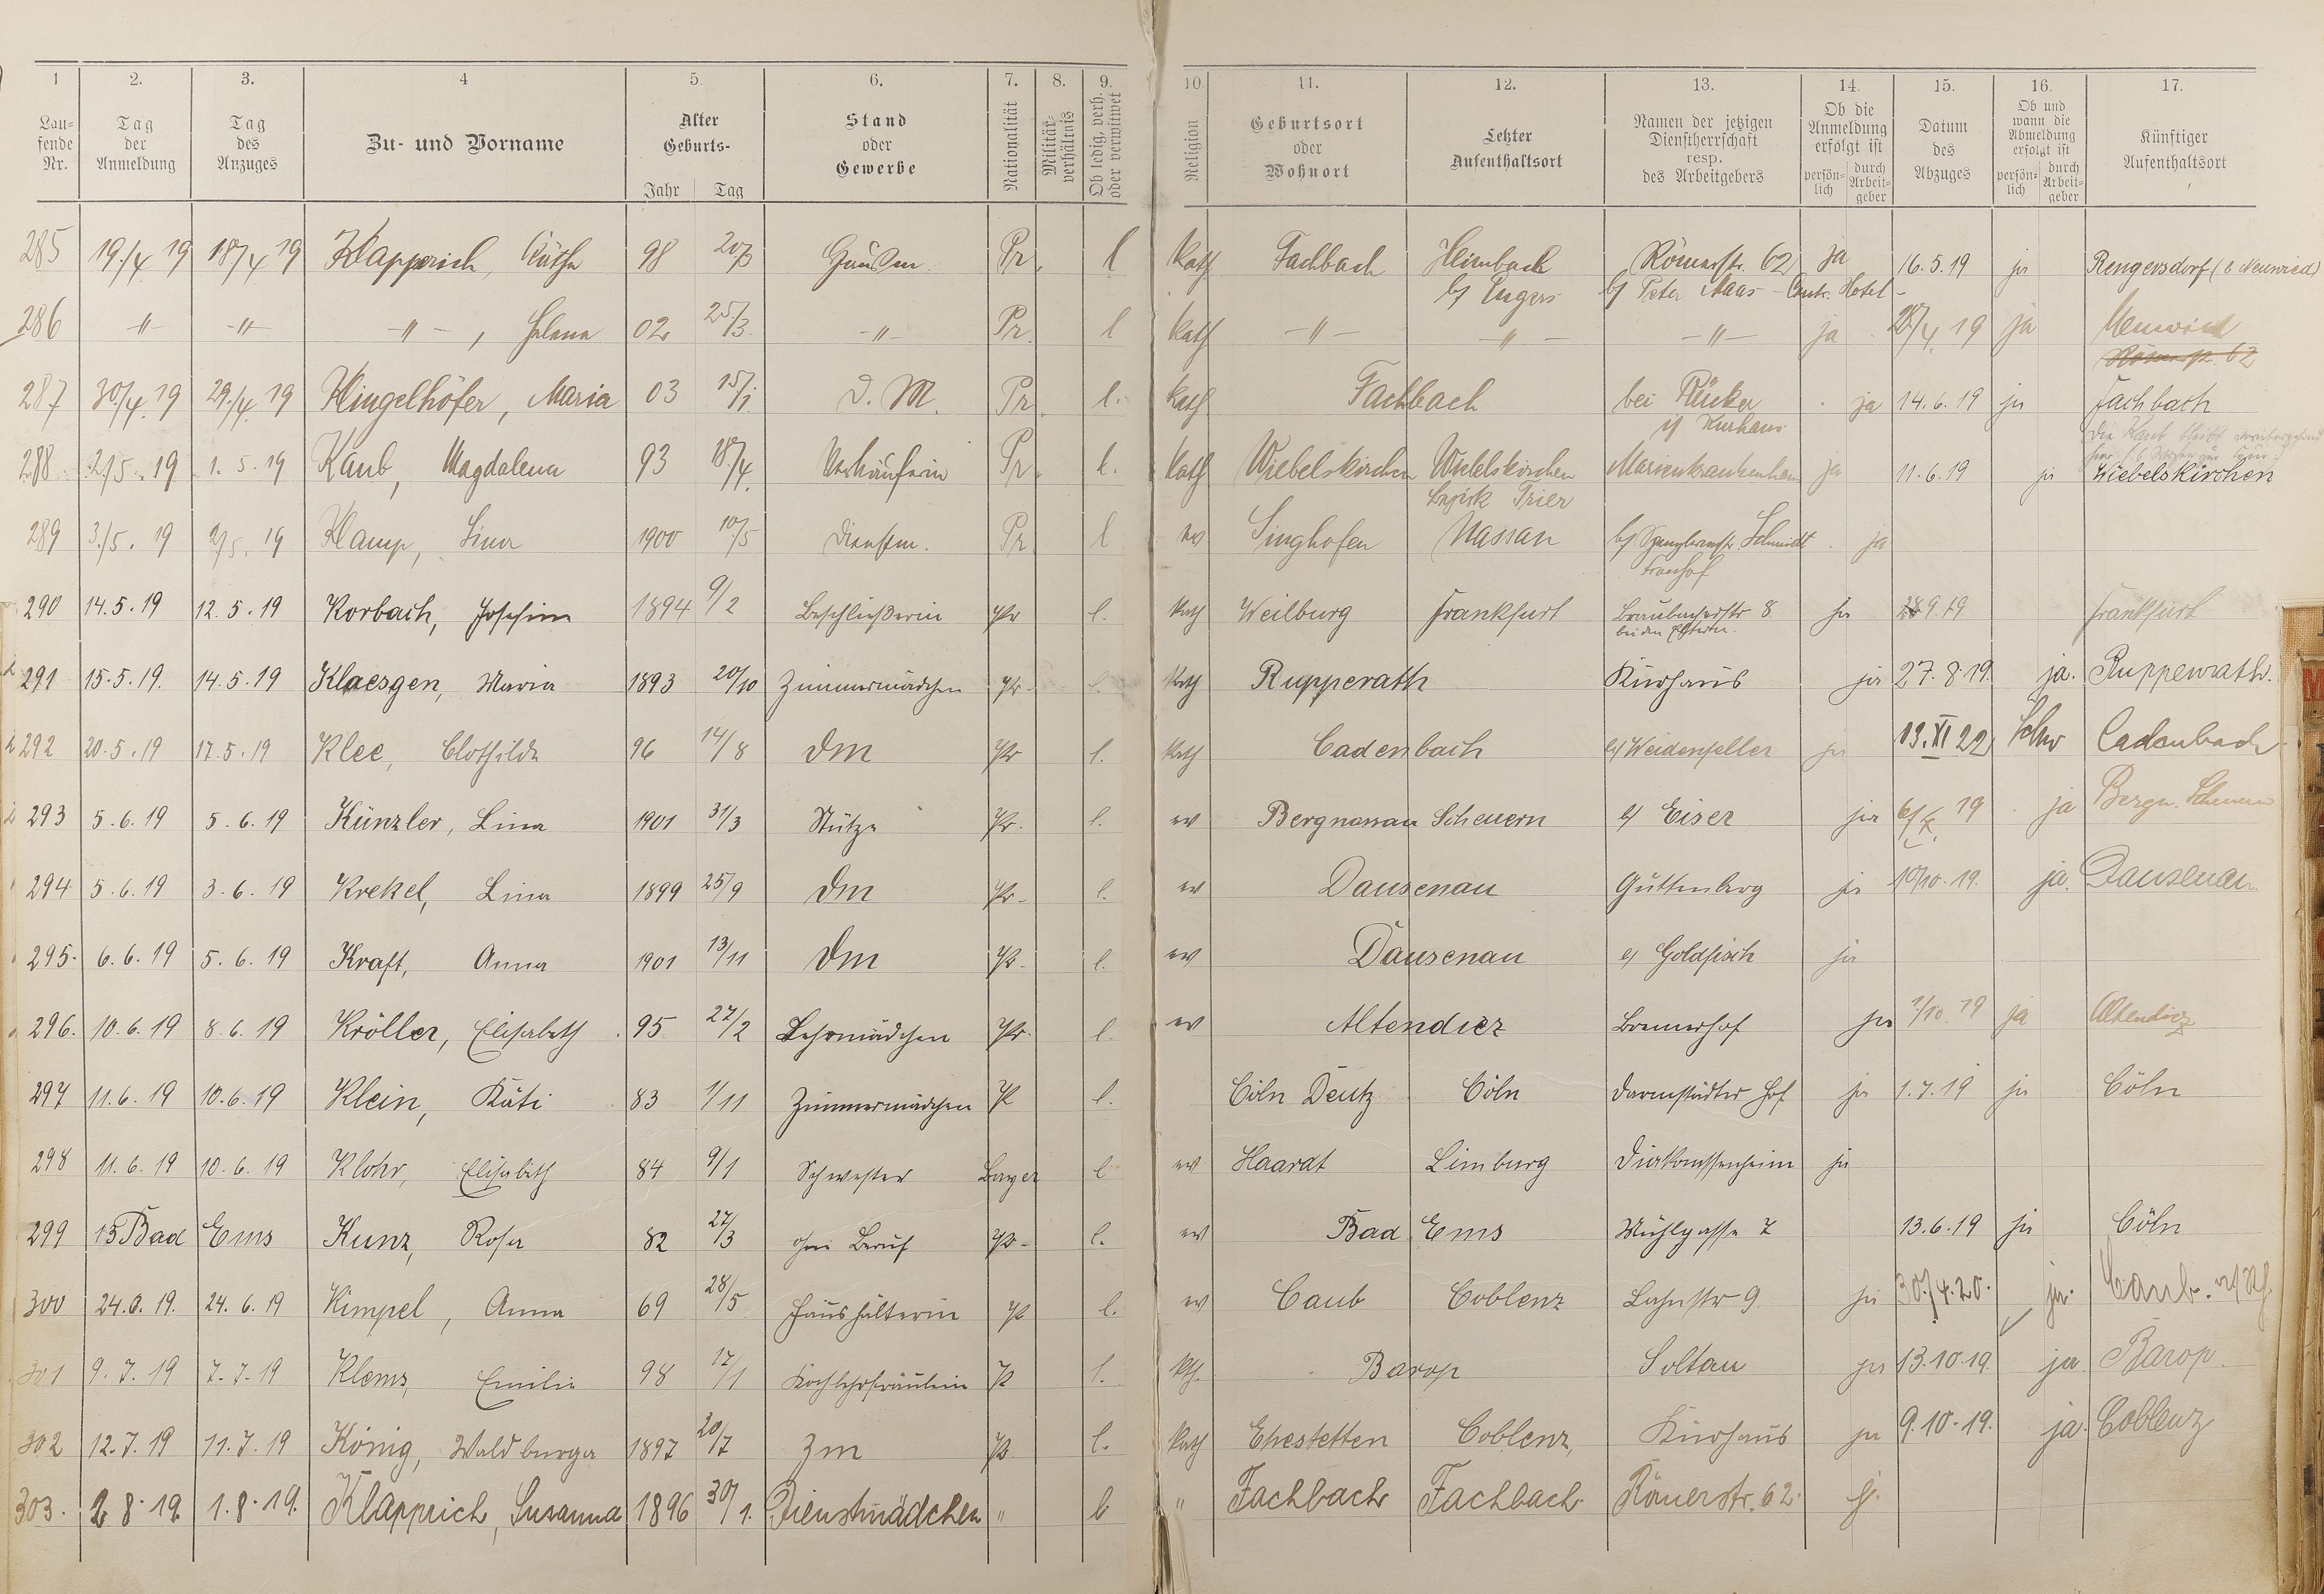 1 2. 3. 4 5. 6. 7. 8. 9. 10 11. 12. 13. 14. 15. 16. 17.
Lau-fende Nr. Tag der Anmeldung Tag des Anzuges Zu- und Vorname Alter Geburts- Jahr Tag Stand oder Gewerbe Nationalität Militär-verhältnis Ob ledig, verh. oder verwitwet Religion Geburtsort oder Wohnort Letzter Aufenthaltsort Namen der jetzigen Dienstherrschaft resp. des Arbeitgebers Ob die Anmeldung erfolgt ist persön-lich durch Arbeit-geber Datum des Abzuges Ob und wann die Abmeldung erfolgt ist persön-lich durch Arbeit-geber Künftiger Aufenthaltsort
285 19./4 19 18/4 19 Klapperich, Käthe 98 20/3 Pr. l kath Fachbach Heimbach Römerstr. 62 ja 16.5.19 ja Rengersdorf (b Neuwied)
b/ Engers b/ Peter Maas - Hotel -
286 -"- -"- -"- , Helena 02 25/3 -"- Pr. l kath -"- -"- -"- ja 28/4 19 ja Neuwied
Römerstr. 62
287 30/4 19 29./4 19 Klingelhöfer, Maria 03 15/1 D. M. Pr. l. kath Fachbach bei Rücker ja 14.6.19 ja Fachbach
i/ Kurhaus
288 2/5. 19 1. 5. 19 Kaub, Magdalena 93 18/4 Verkäuferin Pr. l. kath Wiebelskirchen Wiebelskirchen Marienkrankenhaus ja 11.6.19 ja Wiebelskirchen
Bezirk Trier
289 3./5. 19 2/5. 19 Klamp, Lina 1900 10/5 Dienstm. Pr. l ev Singhofen Nassau b/ Schmidt ja
290 14.5.19 12.5.19 Korbach, Josefine 1894 9/2 Beschließerin Pr l. kath Weilburg Frankfurt Braubacherstr 8 ja 9.19 Frankfurt
bei den Eltern.
291 15.5.19. 14.5.19 Klaesgen, Maria 1893 20/10 Zimmermädchen Pr. l. kath Rupperath Kurhaus ja 27.8.19. ja. Ruppenrath.
292 20.5.19 17.5.19 Klee, Clothilde 96 14/8 Dm Pr l. kath Cadenbach b/ Weidenfeller ja 13.XI 22 Cadenbach
293 5.6.19 5.6.19 Künzler, Lina 1901 31/3 Stütze Pr. l. ev Bergnassau Scheuern b/ Eiser ja 6/X. 19 ja Bergn. Scheuern
294 5.6.19 3.6.19 Krekel, Lina 1899 25/9 Dm Pr. l. ev Dausenau Guttenberg ja 10/10.19. ja. Dausenau.
295. 6.6.19 5.6.19 Kraft, Anna 1901 13/11 Dm Pr. l. ev Dausenau b/ Goldfisch ja
296. 10.6.19 8.6.19 Kröller, Elisabeth 95 27/2 Lehrmädchen Pr. l. ev Altendiez Bremerhof ja 1/10.19 ja Altendiez
297 11.6.19 10.6.19 Klein, Käti 83 1/11 Zimmermädchen Pr l. Cöln Deutz Cöln Darmstädter Hof ja 1.7.19 ja Cöln
298 11.6.19 10.6.19 Klohr, Elisabeth 84 9/1 Schwester Bayer l ev Haardt Limburg Diakonissenheim ja
299 15 Bad Ems Kunz, Rosa 82 27/3 ohne Beruf Pr. l. ev Bad Ems Mühlgasse 7 13.6.19 ja Cöln
300 24.6.19. 24.6.19 Kimpel, Anna 69 28/5 Haushälterin Pr l. ev Caub Coblenz Lahnstr 9 ja 30./4.20. ja. Caub. a/Rh.
301 9.7.19 7.7.19 Klems, Emilie 98 17/1 Kochlehrfräulein Pr l. kth. Barop Soltau ja 13.10.19. ja. Barop.
302 12.7.19 11.7.19 König, Waldburga 1897 20/7 Zm Pr. l. kath Ehestetten Coblenz, Kurhaus ja 9.10.19. ja. Coblenz
303. 2.8.19. 1.8.19. Klapprich, Susanna 1896 30/1. Dienstmädchen " l " Fachbach Fachbach Römerstr. 62. j.